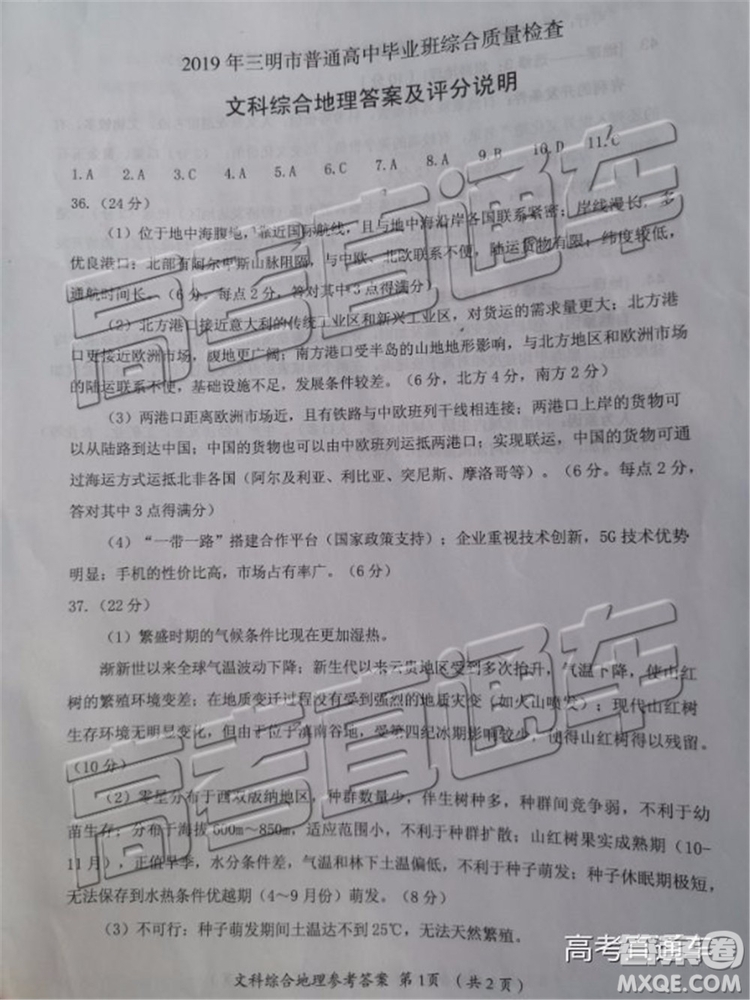 2019年三明市普通高中毕业班综合质量检查
文科综合地理答案及评分说明
1.A 2.A 3.C 4.A 5.A 6.C 7.A 8.A 9.B 10.D 11.C
36.（24分）
（1）位于地中海腹地，靠近国际航线，且与地中海沿岸各国联系紧密；岸线漫长，多
优良港口；北部有阿尔卑斯山脉阻隔，与中欧、北欧联系不便，陆运货物有限；纬度较低，
通航时间长。（6分。每点2分，答对其中3点得满分）
（2）北方港口接近意大利的传统工业区和新兴工业区，对货运的需求量更大；北方港
口更接近欧洲市场，腹地更广阔；南方港口受半岛的山地地形影响，与北方地区和欧洲市场
的陆运联系不便，基础设施不足，发展条件较差。（6分，北方4分，南方2分）
（3）两港口距离欧洲市场近，且有铁路与中欧班列干线相连接；两港口上岸的货物可
以从陆路到达中国；中国的货物也可以由中欧班列运抵两港口；实现联运，中国的货物可通
过海运方式运抵北非各国（阿尔及利亚、利比亚、突尼斯、摩洛哥等）。（6分。每点2分，
答对其中3点得满分）
（4）“一带一路”搭建合作平台（国家政策支持）；企业重视技术创新，5G技术优势
明显；手机的性价比高，市场占有率广。（6分）
37.（22分）
（1）繁盛时期的气候条件比现在更加湿热。
渐新世以来全球气温波动下降；新生代以来云贵地区受到多次抬升，气温下降，使山红
树的繁殖环境变差；在地质变迁过程没有受到强烈的地质灾变（如火山喷发）；现代山红树
生存环境无明显变化，但由于位于滇南谷地，受第四纪冰期影响较少，使得山红树得以残留。
（10分）
（2）零星分布于西双版纳地区，种群数量少，伴生树种多，种群间竞争弱，不利于幼
苗生存；分布于海拔600m～850m，适应范围小，不利于种群扩散；山红树果实成熟期（10-
11月），正值旱季，水分条件差，气温和林下土温偏低，不利于种子萌发；种子休眠期极短，
无法保存到水热条件优越期（4～9月份）萌发。（8分）
（3）不可行：种子萌发期间土温达不到25℃，无法天然繁殖。
文科综合地理参考答案 第1页 （共2页）
高考直通车
高考直通车
高考直通车
答案圈
MXQE.COM